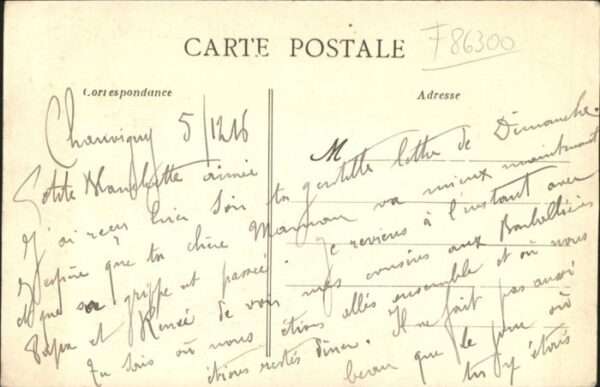 CARTE POSTALE
F86300
Correspondance
Adresse
M
Chauvigny 5/12 16
Petite Blanchette aimée
J'ai reçu hier soir ta gentille lettre de Dimanche.
J'espère que ta chère Maman va mieux maintenant
et que sa grippe est passée. Je reviens à l'instant avec
Papa et Renée de voir mes cousins aux Barbellières
Tu sais où nous étions allés ensemble et où nous
étions restés dîner. Il ne fait pas aussi
beau que le jour où
tu y étais